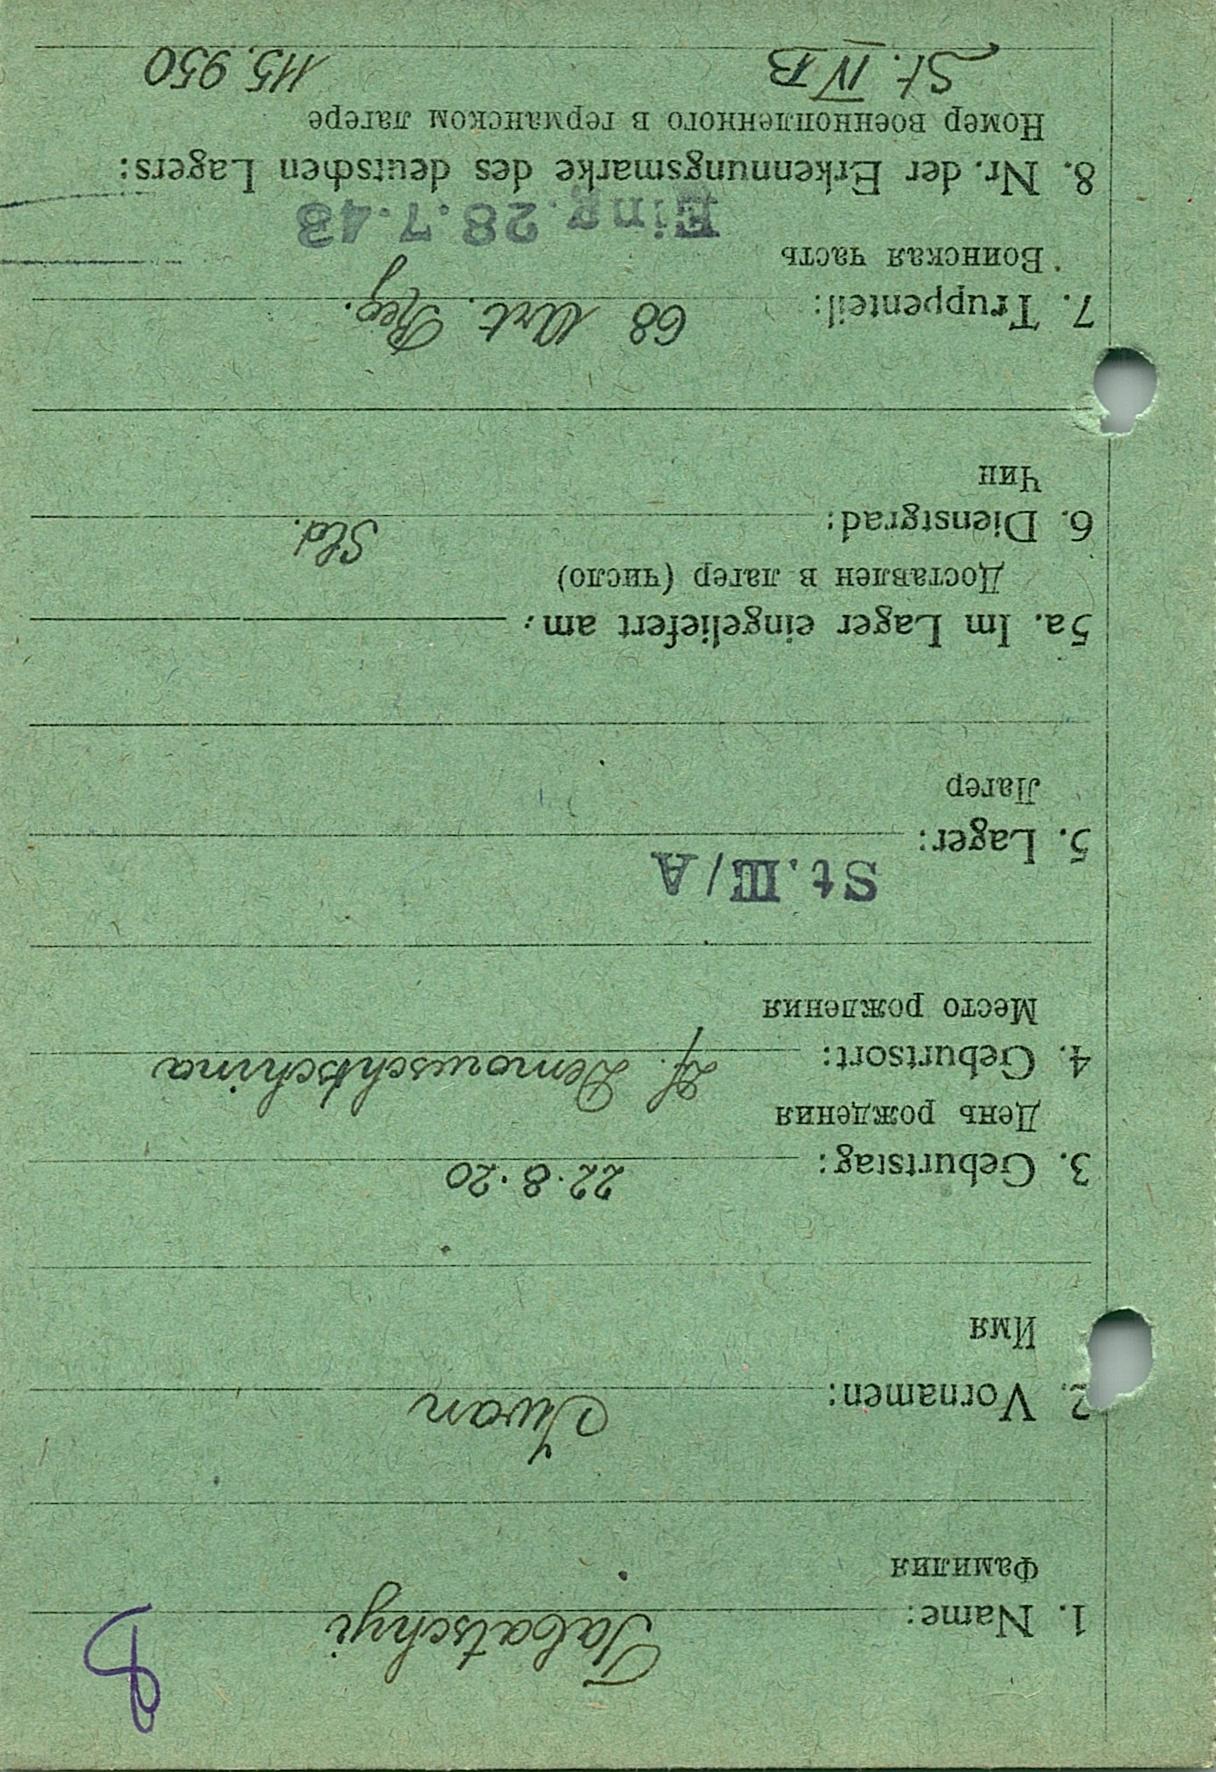 1. Name: Tabatschyi
Фамилия
2. Vornamen: Iwan
Имя
3. Geburtstag: 22.8.20
День рождения
4. Geburtsort: Df. Demowschtschina
Место рождения
St. III/A
5. Lager:
Лагер
5a. Im Lager eingeliefert am:
Доставлен в лагер (число)
6. Dienstgrad: Sld.
Чин
7. Truppenteil: 68 Art. Reg.
Воинская часть
Eing. 28.7.43
8. Nr. der Erkennungsmarke des deutschen Lagers:
Номер военнопленного в германском лагере
St. IV B 115.950